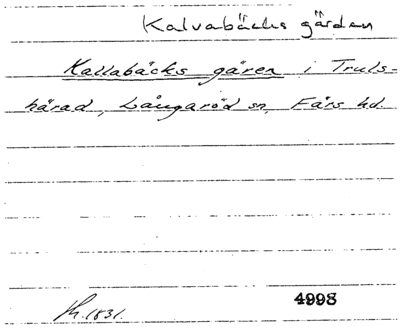 Kalvabäcks gärden
Kallabäcks gären i Truls-
härad, Långaröd sn, Färs hd.
1831.
4998